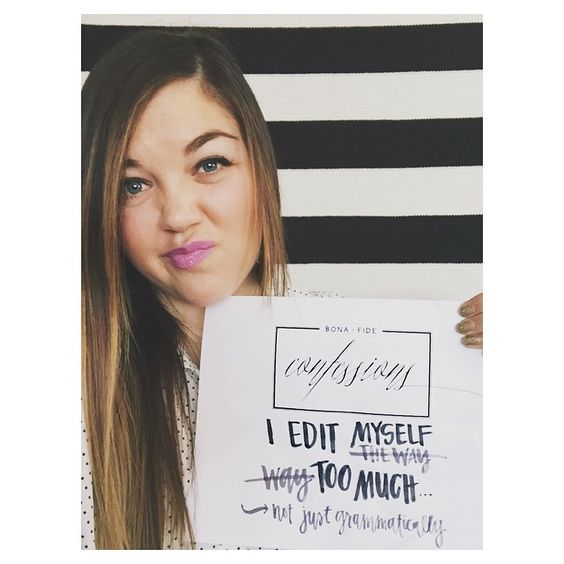 BONA-FIDE
confessions
I EDIT MYSELF
THE WAY
way TOO MUCH...
→ not just grammatically